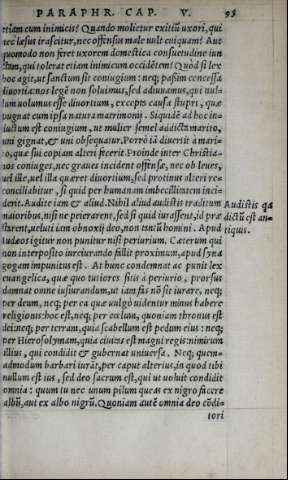 PARAPHR. CAP. V. 95
etiam cum inimicis? Quando molietur exitiũ uxori, qui
nec læsus irascitur, nec offensus male uult cuiquam? Aut
quomodo non feret uxorem domestica consuetudine iun
ctam, qui tolerat etiam inimicum occidẽtem? Quòd si lex
hoc agit, ut sanctum sit coniugium: neq; passim cencessa
diuortia: nos legẽ non soluimus, sed adiuuamus, qui nul
lum uolumus esse diuortium, excepta causa stupri, quæ
pugnat cum ipsa natura matrimonij. Siquidẽ ad hoc in
stitutum est coniugium, ut mulier semel addicta marito,
uni gignat, & uni obsequatur. Porrò iã diuertit à mari
to, quæ sui copiam alteri fecerit. Proinde inter Christia-
nos coniuges, nec graues incident offensæ, nec ob leues,
uel ille, uel illa quæret diuortium, sed protinus alteri re-
conciliabitur, si quid per humanam imbecillitatem inci-
derit. Audite iam & aliud. Nihil aliud audistis traditum
Audistis qã
maioribus, nisi ne peierarent, sed si quid iurassent, id præ
dictũ est an-
starent, ueluti iam obnoxij deo, non tantũ homini. Apud
tiquis.
Iudæos igitur non punitur nisi periurium. Cæterum qui
non interposito iureiurando fallit proximum, apud syna
gogam impunitus est. At hunc condemnat ac punit lex
euangelica, quæ quo tutiores sitis à periurio, prorsus
damnat omne iusiurandum, ut iam fas nõ sit iurare, neq;
per deum, neq; per ea quæ uulgò uidentur minus habere
religionis: hoc est, neq; per cœlum, quoniam thronus est
dei: neq; per terram, quia scabellum est pedum eius: neq;
per Hierosolymam, quia ciuitas est magni regis: nimirum
illius, qui condidit & gubernat uniuersa. Neq; quem-
admodum barbari iurãt, per caput alterius, in quod tibi
nullum est ius, sed deo sacrum est, qui ut uoluit condidit
omnia: quum tu nec unum pilum queas ex nigro facere
albũ, aut ex albo nigrũ. Quoniam autẽ omnia deo cõdi-
tori